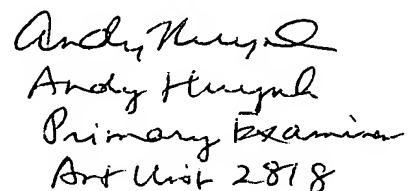 Andy Huynh
Andy Huynh
Primary Examiner
Art Unit 2818